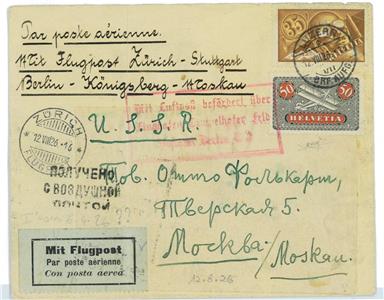 Par poste aérienne.
Mit Flugpost Zürich - Stuttgart
Berlin - Königsberg - Moskau
35
50 50
HELVETIA
Mit Luftpost befördert über
ZÜRICH
12.VIII.26.-18
FLUG
U.S.S.R.
ПОЛУЧЕНО
С ВОЗДУШНОЙ
ПОЧТОЙ
Тов. Отто Фолькарт,
Тверская 5.
Москва/Moskau.
12.8.26
Mit Flugpost
Par poste aérienne
Con posta aerea